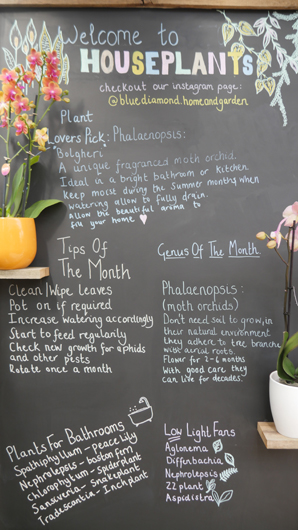 Welcome to
HOUSEPLANTS
checkout our instagram page:
@bluediamond.homeandgarden
Plant
Lovers Pick: Phalaenopsis:
Bolgheri
A unique fragranced moth orchid.
Ideal in a bright bathroom or kitchen.
Keep moist during the summer months when
watering allow to fully drain.
Allow the beautiful aroma to
fill your home
Tips Of
The Month
Clean/Wipe Leaves
Pot on if required
Increase watering accordingly
Start to feed regularly
Check new growth for aphids
and other pests
Rotate once a month
Genus Of The Month
Phalaenopsis:
(moth orchids)
Don't need soil to grow, in
their natural environment
they adhere to tree branches
via aerial roots.
Flower for 2-6 months
With good care they
can live for decades.
Plants For Bathrooms
Spathiphyllum - Peace Lily
Nephrolepsis - boston fern
Chlorophytum - Spiderplant
Sansiveria - Snakeplant
Tradescantia - Inch plant
Low Light Fans
Aglonema
Diffenbachia
Nephrolepsis
ZZ plant
Aspidistra